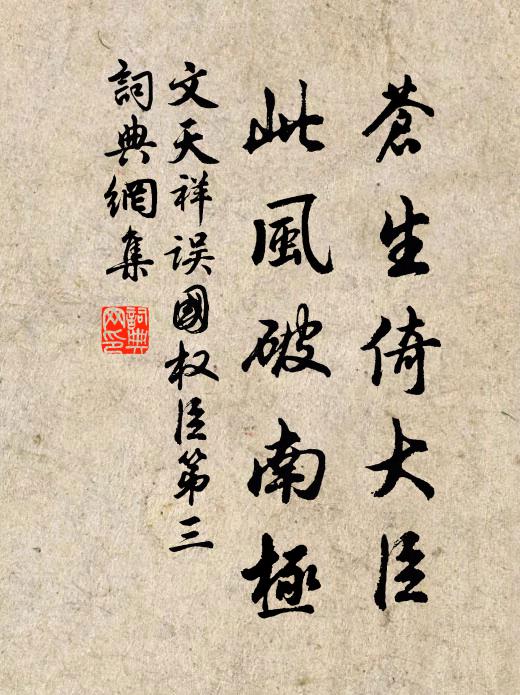 蒼生倚大臣
此風破南極
文天祥误國权臣第三
詞典網集
詞典
网印